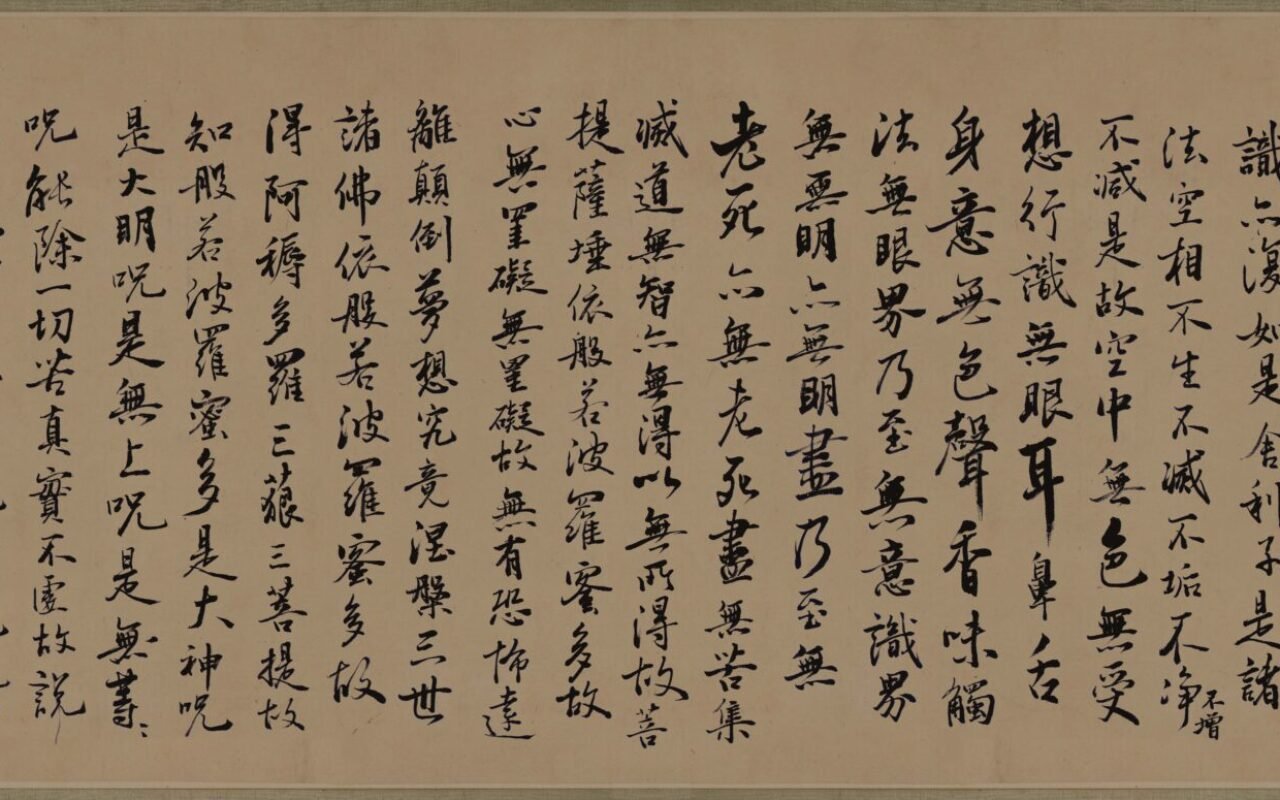 識亦復如是舍利子是諸
法空相不生不滅不垢不淨不增
不減是故空中無色無受
想行識無眼耳鼻舌
身意無色聲香味觸
法無眼界乃至無意識界
無無明亦無明盡乃至無
老死亦無老死盡無苦集
滅道無智亦無得以無所得故菩
提薩埵依般若波羅蜜多故
心無罣礙無罣礙故無有恐怖遠
離顛倒夢想究竟涅槃三世
諸佛依般若波羅蜜多故
得阿耨多羅三藐三菩提故
知般若波羅蜜多是大神呪
是大明呪是無上呪是無等〻
呪能除一切苦真實不虛故說